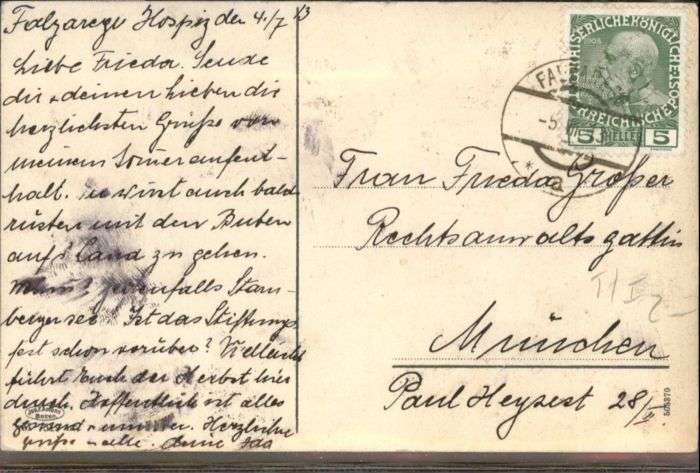 Falzarego Hospiz den 4./7 13
Liebe Frieda. Sende
dir u deinen Lieben die
herzlichsten Grüße von
meinem Someraufent-
halt. Du wirst auch bald
rüsten mit den Buben
auf's Land zu gehen.
jedenfalls Starn-
bergersee. Ist das Stiftungs
fest schon vorüber? Vielleicht
führt Euch der Herbst hier
durch. Hoffentlich ist alles
gesund u munter. Herzliche
Grüße deine Ida
KAISERLICHE KÖNIGLICHE
ÖSTERREICHISCHE POST
1908
5 HELLER 5
FAL
-5. VII
a
Frau Frieda Großer
Rechtsanwaltsgattin
München
Paul Heysest 28/II.